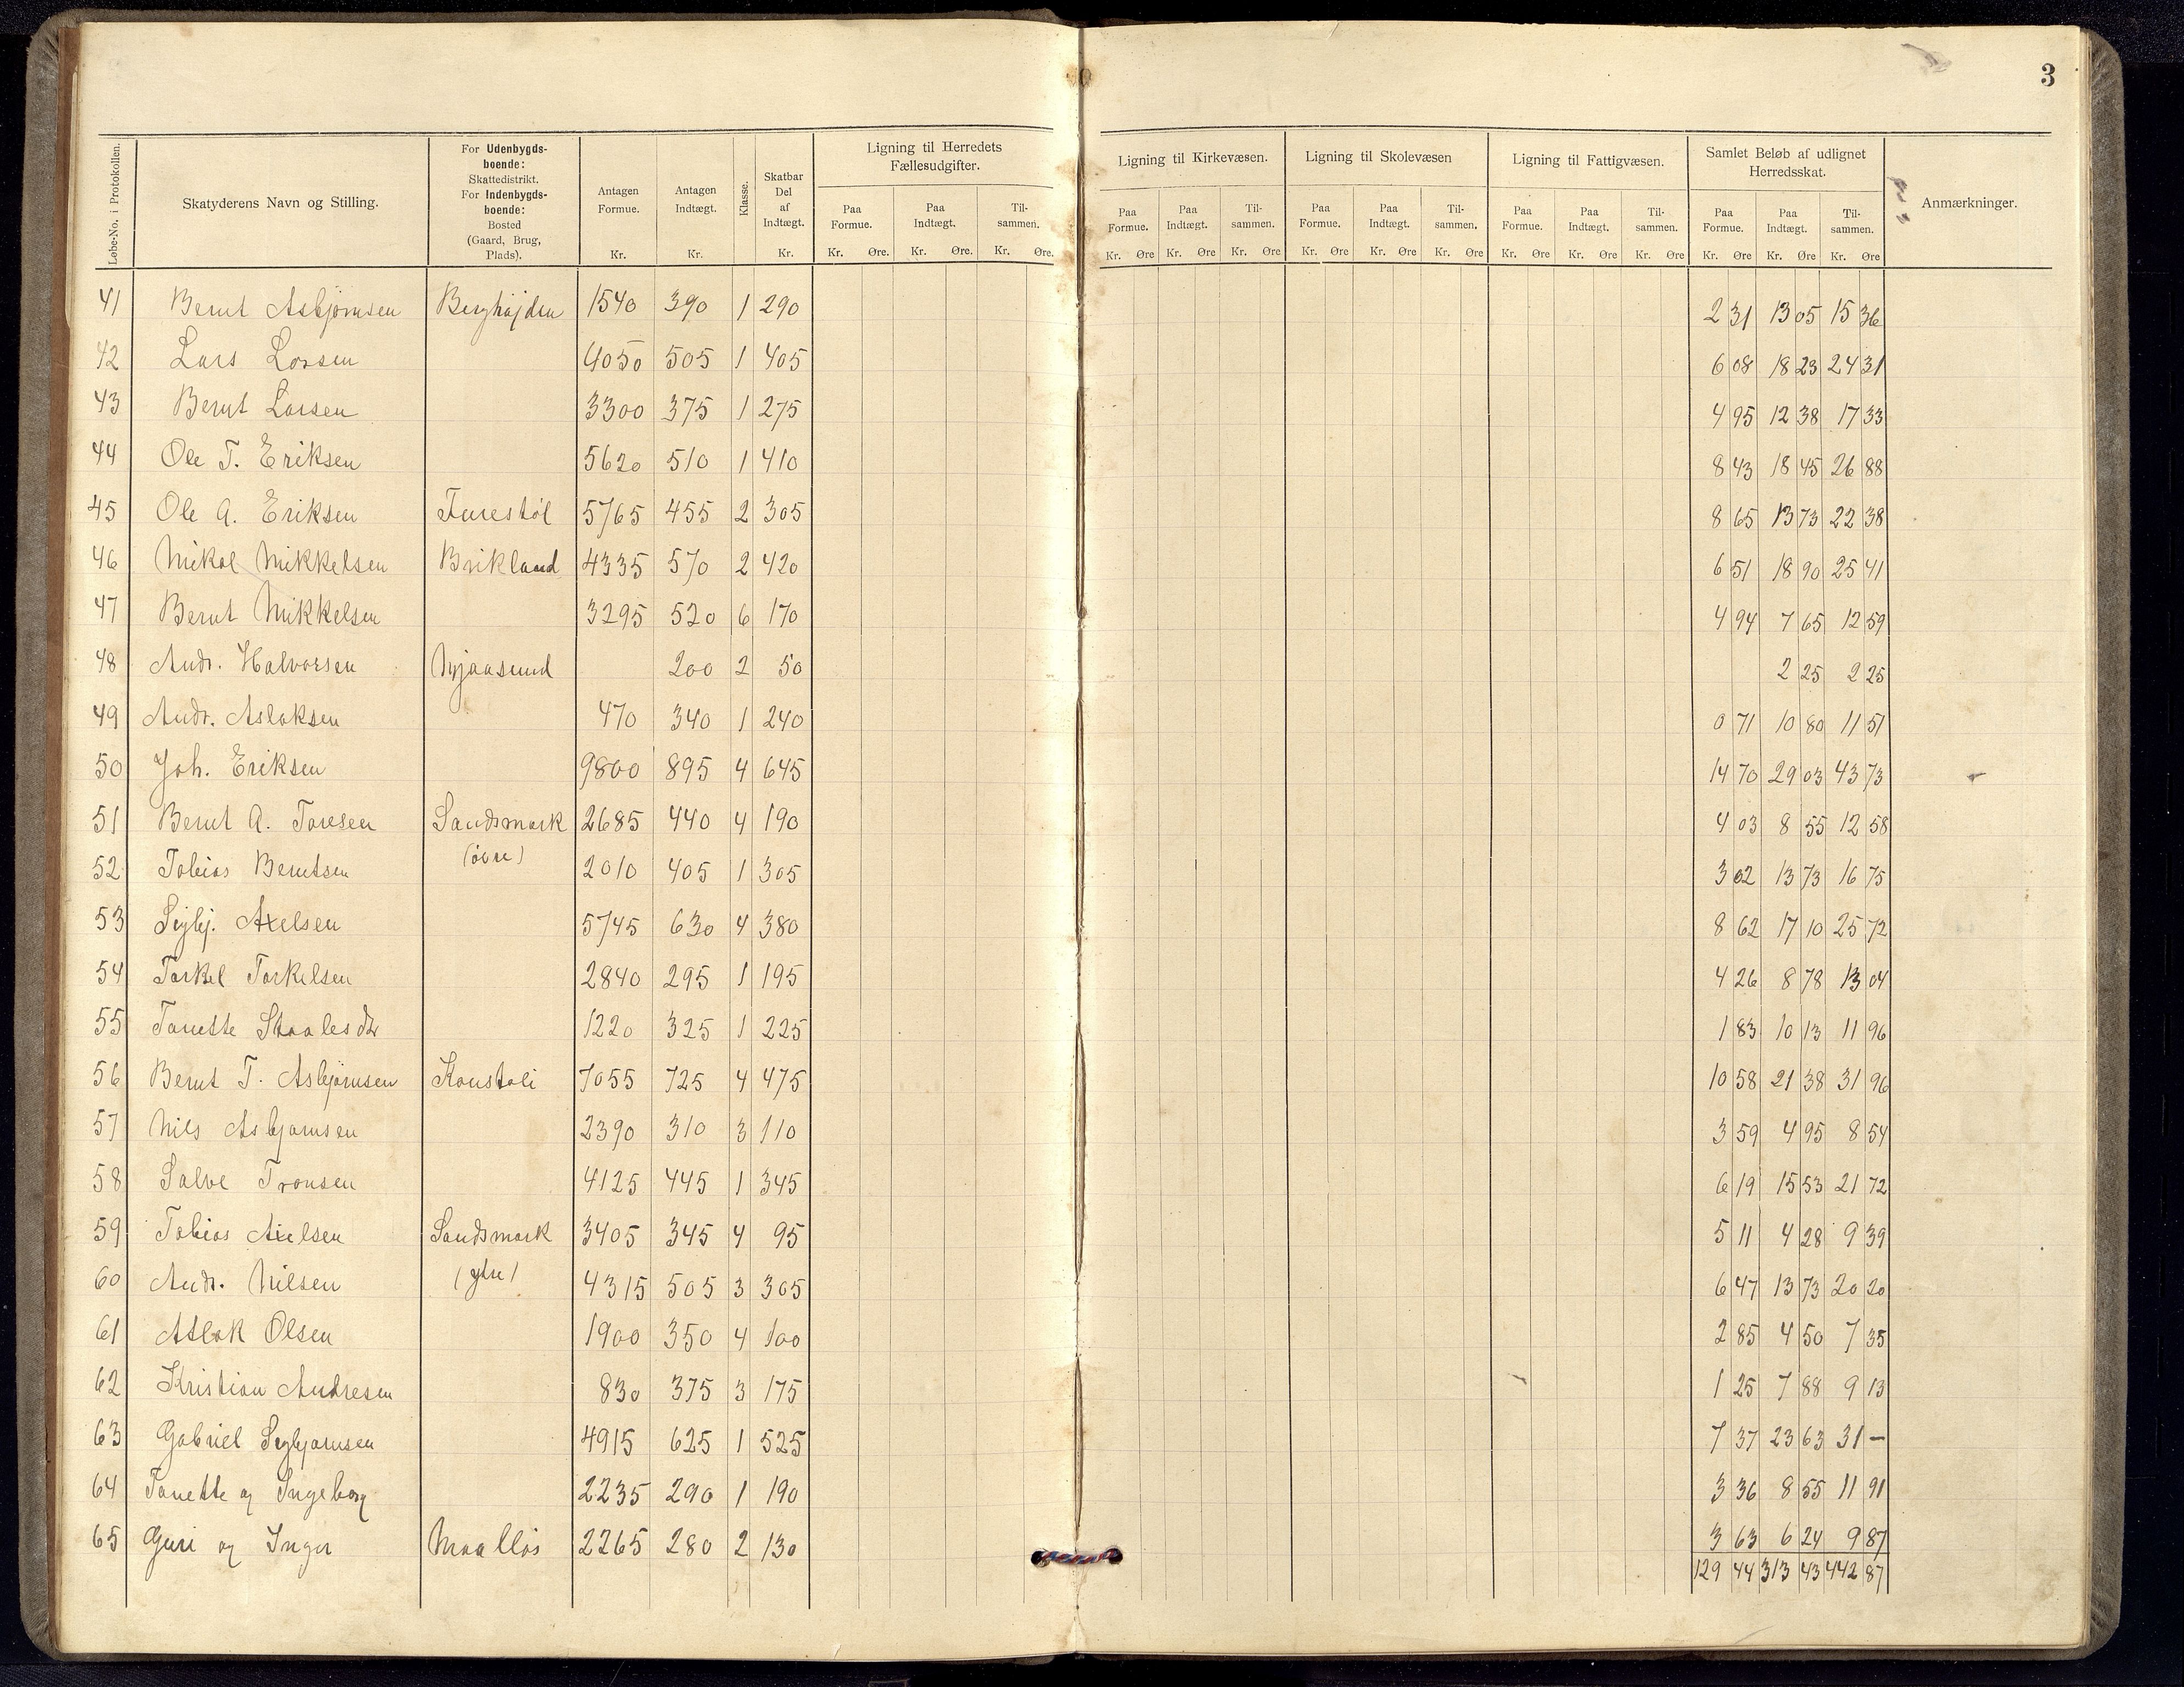 3
Løbe-No. i Protokollen.
Skatyderens Navn og Stilling.
For Udenbygds-boende: Skattedistrikt. For Indenbygds-boende: Bosted (Gaard, Brug, Plads).
Antagen Formue. Kr.
Antagen Indtægt. Kr.
Klasse.
Skatbar Del af Indtægt. Kr.
Ligning til Herredets Fællesudgifter.
Paa Formue. Kr. Øre. Paa Indtægt. Kr. Øre. Til-sammen. Kr. Øre.
Ligning til Kirkevæsen.
Paa Formue. Kr. Øre Paa Indtægt. Kr. Øre Til-sammen. Kr. Øre
Ligning til Skolevæsen
Paa Formue. Kr. Øre Paa Indtægt. Kr. Øre Til-sammen. Kr. Øre
Ligning til Fattigvæsen.
Paa Formue. Kr. Øre Paa Indtægt. Kr. Øre Til-sammen. Kr. Øre
Samlet Beløb af udlignet Herredsskat.
Paa Formue. Kr. Øre Paa Indtægt. Kr. Øre Til-sammen. Kr. Øre
Anmærkninger.
41 Bernt Asbjørnsen Berghøjden 1540 390 1 290 2 31 13 05 15 36
42 Lars Larsen 4050 505 1 405 6 08 18 23 24 31
43 Bernt Larsen 3300 375 1 275 4 95 12 38 17 33
44 Ole T. Eriksen 5620 510 1 410 8 43 18 45 26 88
45 Ole A. Eriksen Furestøl 5765 455 2 305 8 65 13 73 22 38
46 Mikal Mikkelsen Brikland 4335 570 2 420 6 51 18 90 25 41
47 Bernt Mikkelsen 3295 520 6 170 4 94 7 65 12 59
48 Andr. Halvorsen Mjaasund 200 2 50 2 25 2 25
49 Andr. Aslaksen 470 340 1 240 0 71 10 80 11 51
50 Joh. Eriksen 9800 895 4 645 14 70 29 03 43 73
51 Bernt A. Toresen Sandsmark 2685 440 4 190 4 03 8 55 12 58
(øvre)
52 Tobias Berntsen 2010 405 1 305 3 02 13 73 16 75
53 Sigbj. Axelsen 5745 630 4 380 8 62 17 10 25 72
54 Torkel Torkelsen 2840 295 1 195 4 26 8 78 13 04
55 Tonette Staalesdtr 1220 325 1 225 1 83 10 13 11 96
56 Bernt T. Asbjørnsen Konstali 7055 725 4 475 10 58 21 38 31 96
57 Nils Asbjørnsen 2390 310 3 110 3 59 4 95 8 54
58 Salve Tronsen 4125 445 1 345 6 19 15 53 21 72
59 Tobias Axelsen Sandsmark 3405 345 4 95 5 11 4 28 9 39
(ytre)
60 Andr. Nilsen 4315 505 3 305 6 47 13 73 20 20
61 Aslak Olsen 1900 350 4 100 2 85 4 50 7 35
62 Kristian Andresen 830 375 3 175 1 25 7 88 9 13
63 Gabriel Sigbjørnsen 4915 625 1 525 7 37 23 63 31 —
64 Tonette og Ingeborg 2235 290 1 190 3 36 8 55 11 91
65 Guri og Inger 2265 280 2 130 3 63 6 24 9 87
129 44 313 43 442 87